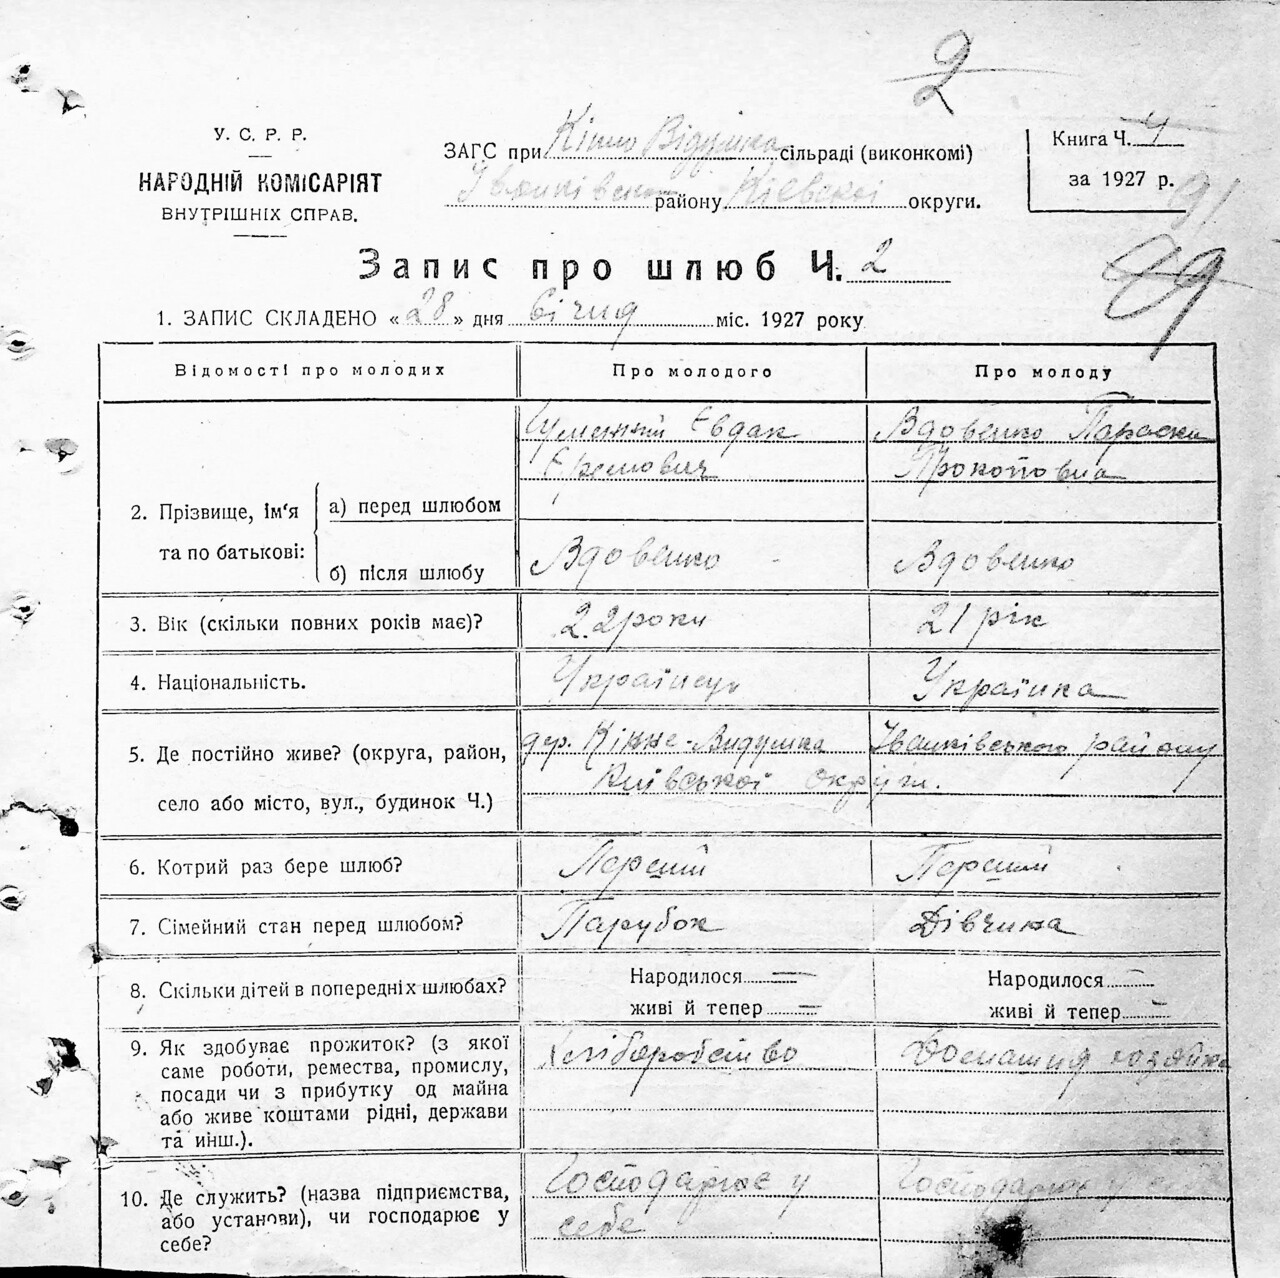 2
У. С. Р. Р.
НАРОДНІЙ КОМІСАРІЯТ
ВНУТРІШНІХ СПРАВ.
ЗАГС при Кінно Відумка сільраді (виконкомі)
району Кіевскоі округи.
Книга Ч. 4
за 1927 р.
91
89
Запис про шлюб Ч. 2
1. ЗАПИС СКЛАДЕНО «28» дня Січня міс. 1927 року
Відомості про молодих Про молодого Про молоду
2. Прізвище, ім'я та по батькові:
а) перед шлюбом
Євдак Вдовенко Параска
Єремович Прокоповна
б) після шлюбу Вдовенко Вдовенко
3. Вік (скільки повних років має)? 22 роки 21 рік
4. Національність. Українець Українка
5. Де постійно живе? (округа, район, дер. Кінне-Видумка Іванківського району
село або місто, вул., будинок Ч.) Київської округи.
6. Котрий раз бере шлюб? Перший Перший
7. Сімейний стан перед шлюбом? Парубок Дівчина
8. Скільки дітей в попередніх шлюбах? Народилося = Народилося =
живі й тепер = живі й тепер =
9. Як здобуває прожиток? (з якої Хліборобство Домашня хазяйка
саме роботи, ремества, промислу,
посади чи з прибутку од майна
або живе коштами рідні, держави
та инш.).
10. Де служить? (назва підприємства, Господарює у Господарює у
або установи), чи господарює у себе
себе?